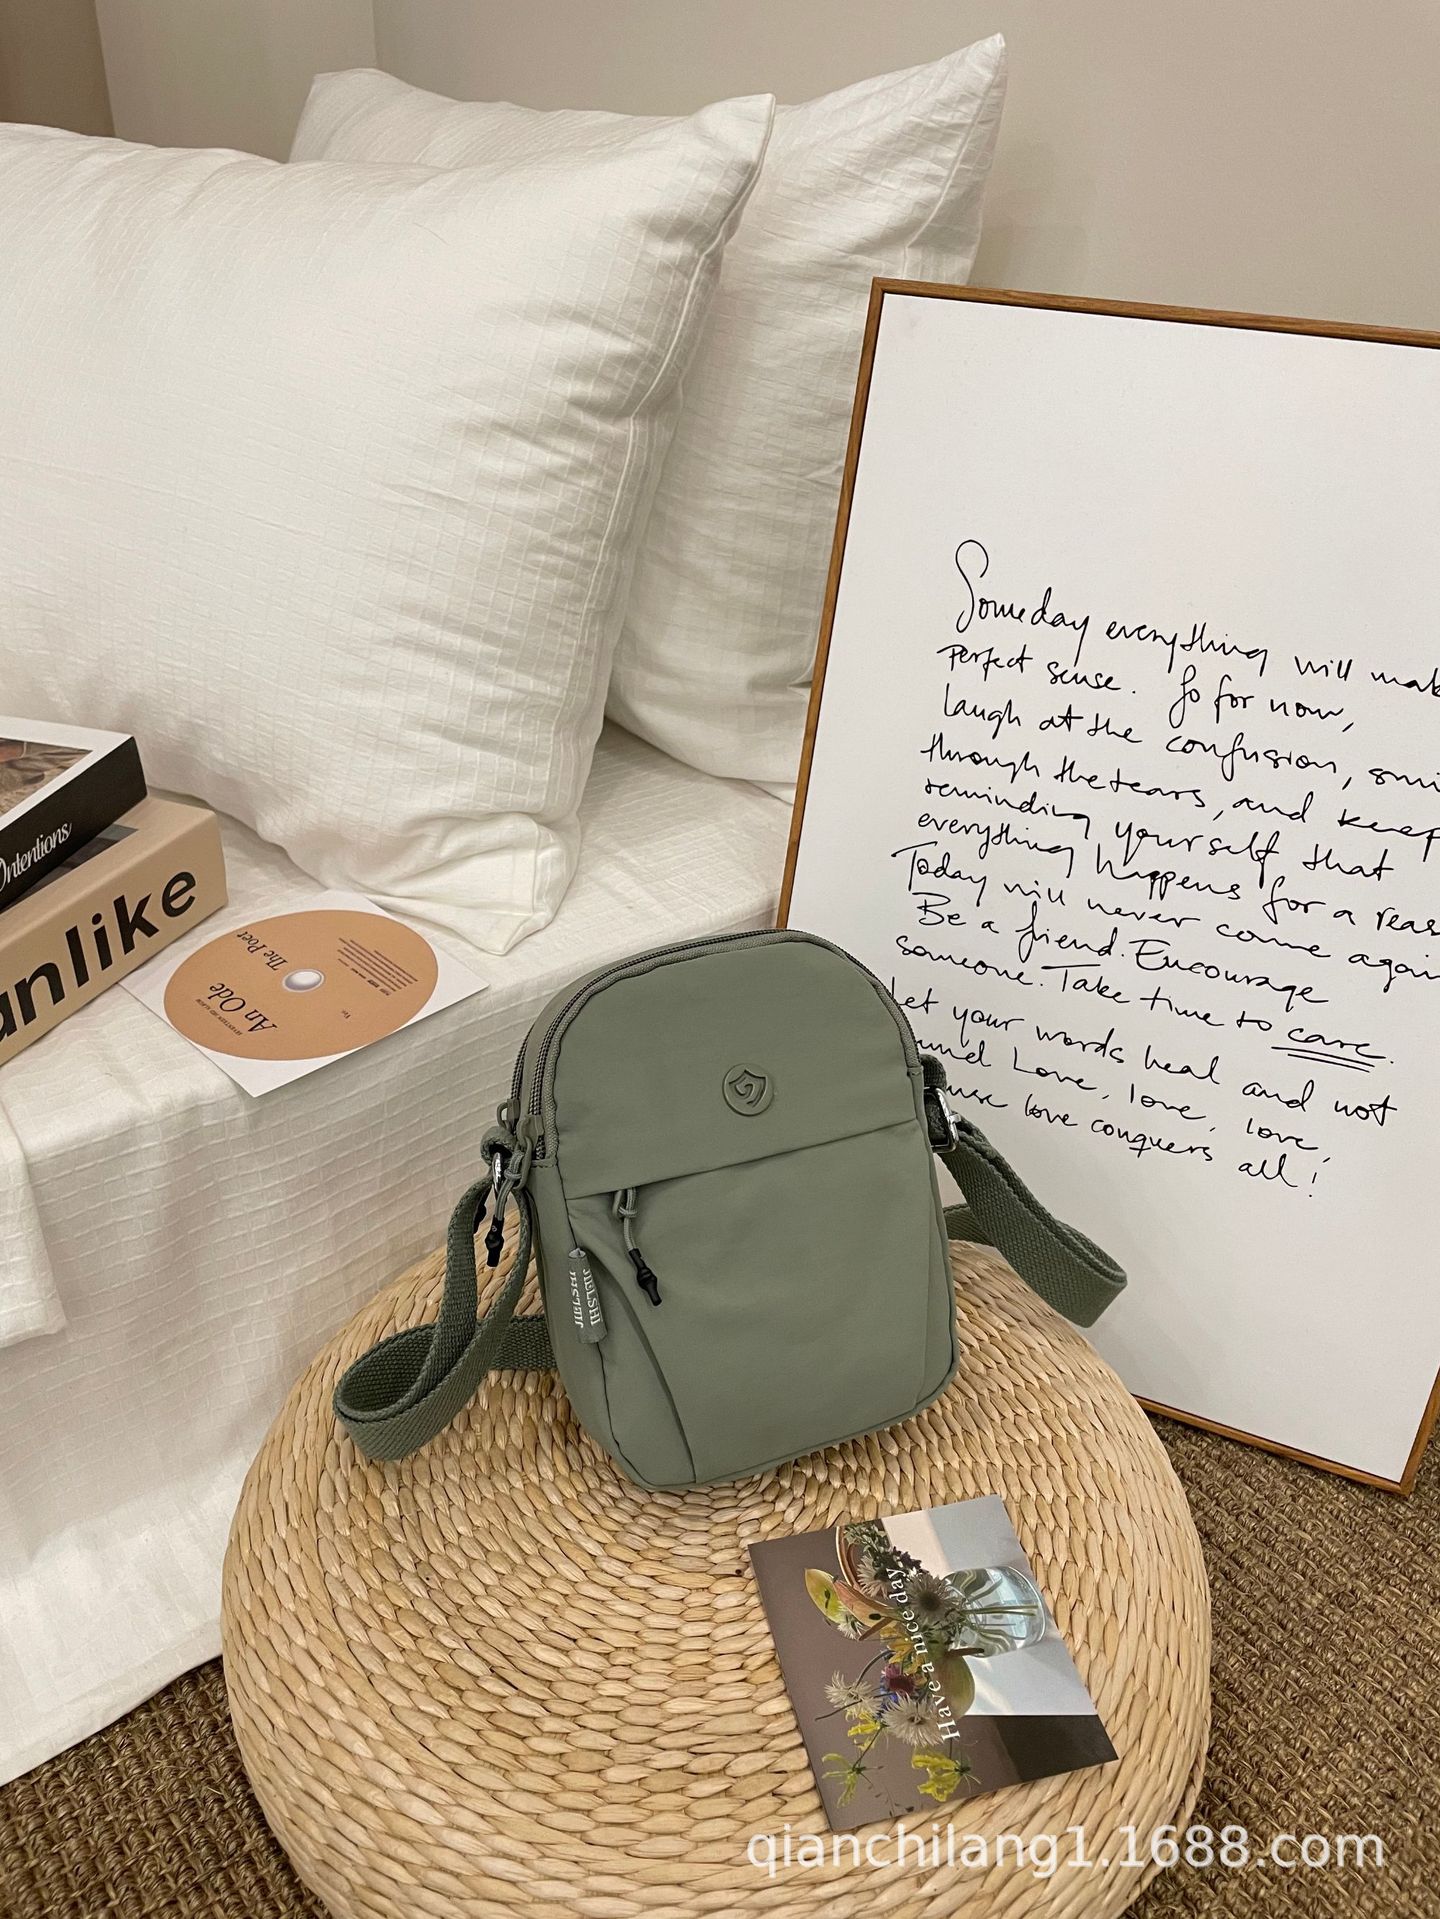 Someday everything will mak
Perfect sense. So for now,
laugh at the confusion, smi
through the tears, and keep
reminding yourself that
everything happens for a reas
Today will never come again
Be a friend. Encourage
someone. Take time to care.
Let your words heal and not
wound Love, love, love,
love conquers all!
Ontentions
anlike
The Poet
An Ode
JIELSHI
JIELSHI
Have a nice day.
qianchilang1.1688.com